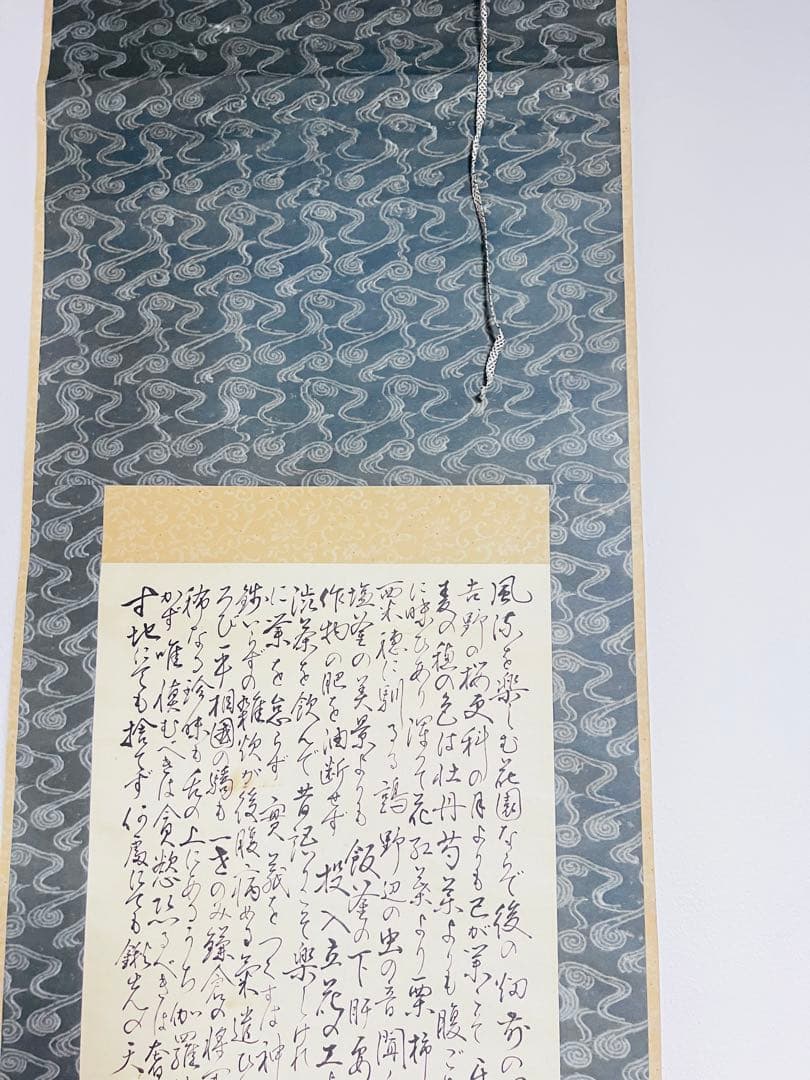 風流を楽しむ花園ならで後の畑前の
吉野の桜更科の月よりも己が業こそ
麦の穂の色は牡丹芍薬よりも腹ご
に味ひあり深くて花紅葉より栗柿
粟穂に馴るる鶉野辺の虫の音聞
塩釜の美景よりも飯釜の下肝要
作物の肥を油断せず投入立花の工
渋茶を飲んで昔語りこそ楽しけれ
に業を怠らず実義をつくすは神
銭いらずの雑炊が後腹病める気遣ひ
ろび平相国の驕も一さきのみ鎌倉の将軍
稀なる珍味も舌の上にあるうち伽羅
かず唯慎むべきは貪慾恐るべきは奢
寸地にても捨てず何處にても鍬先の天